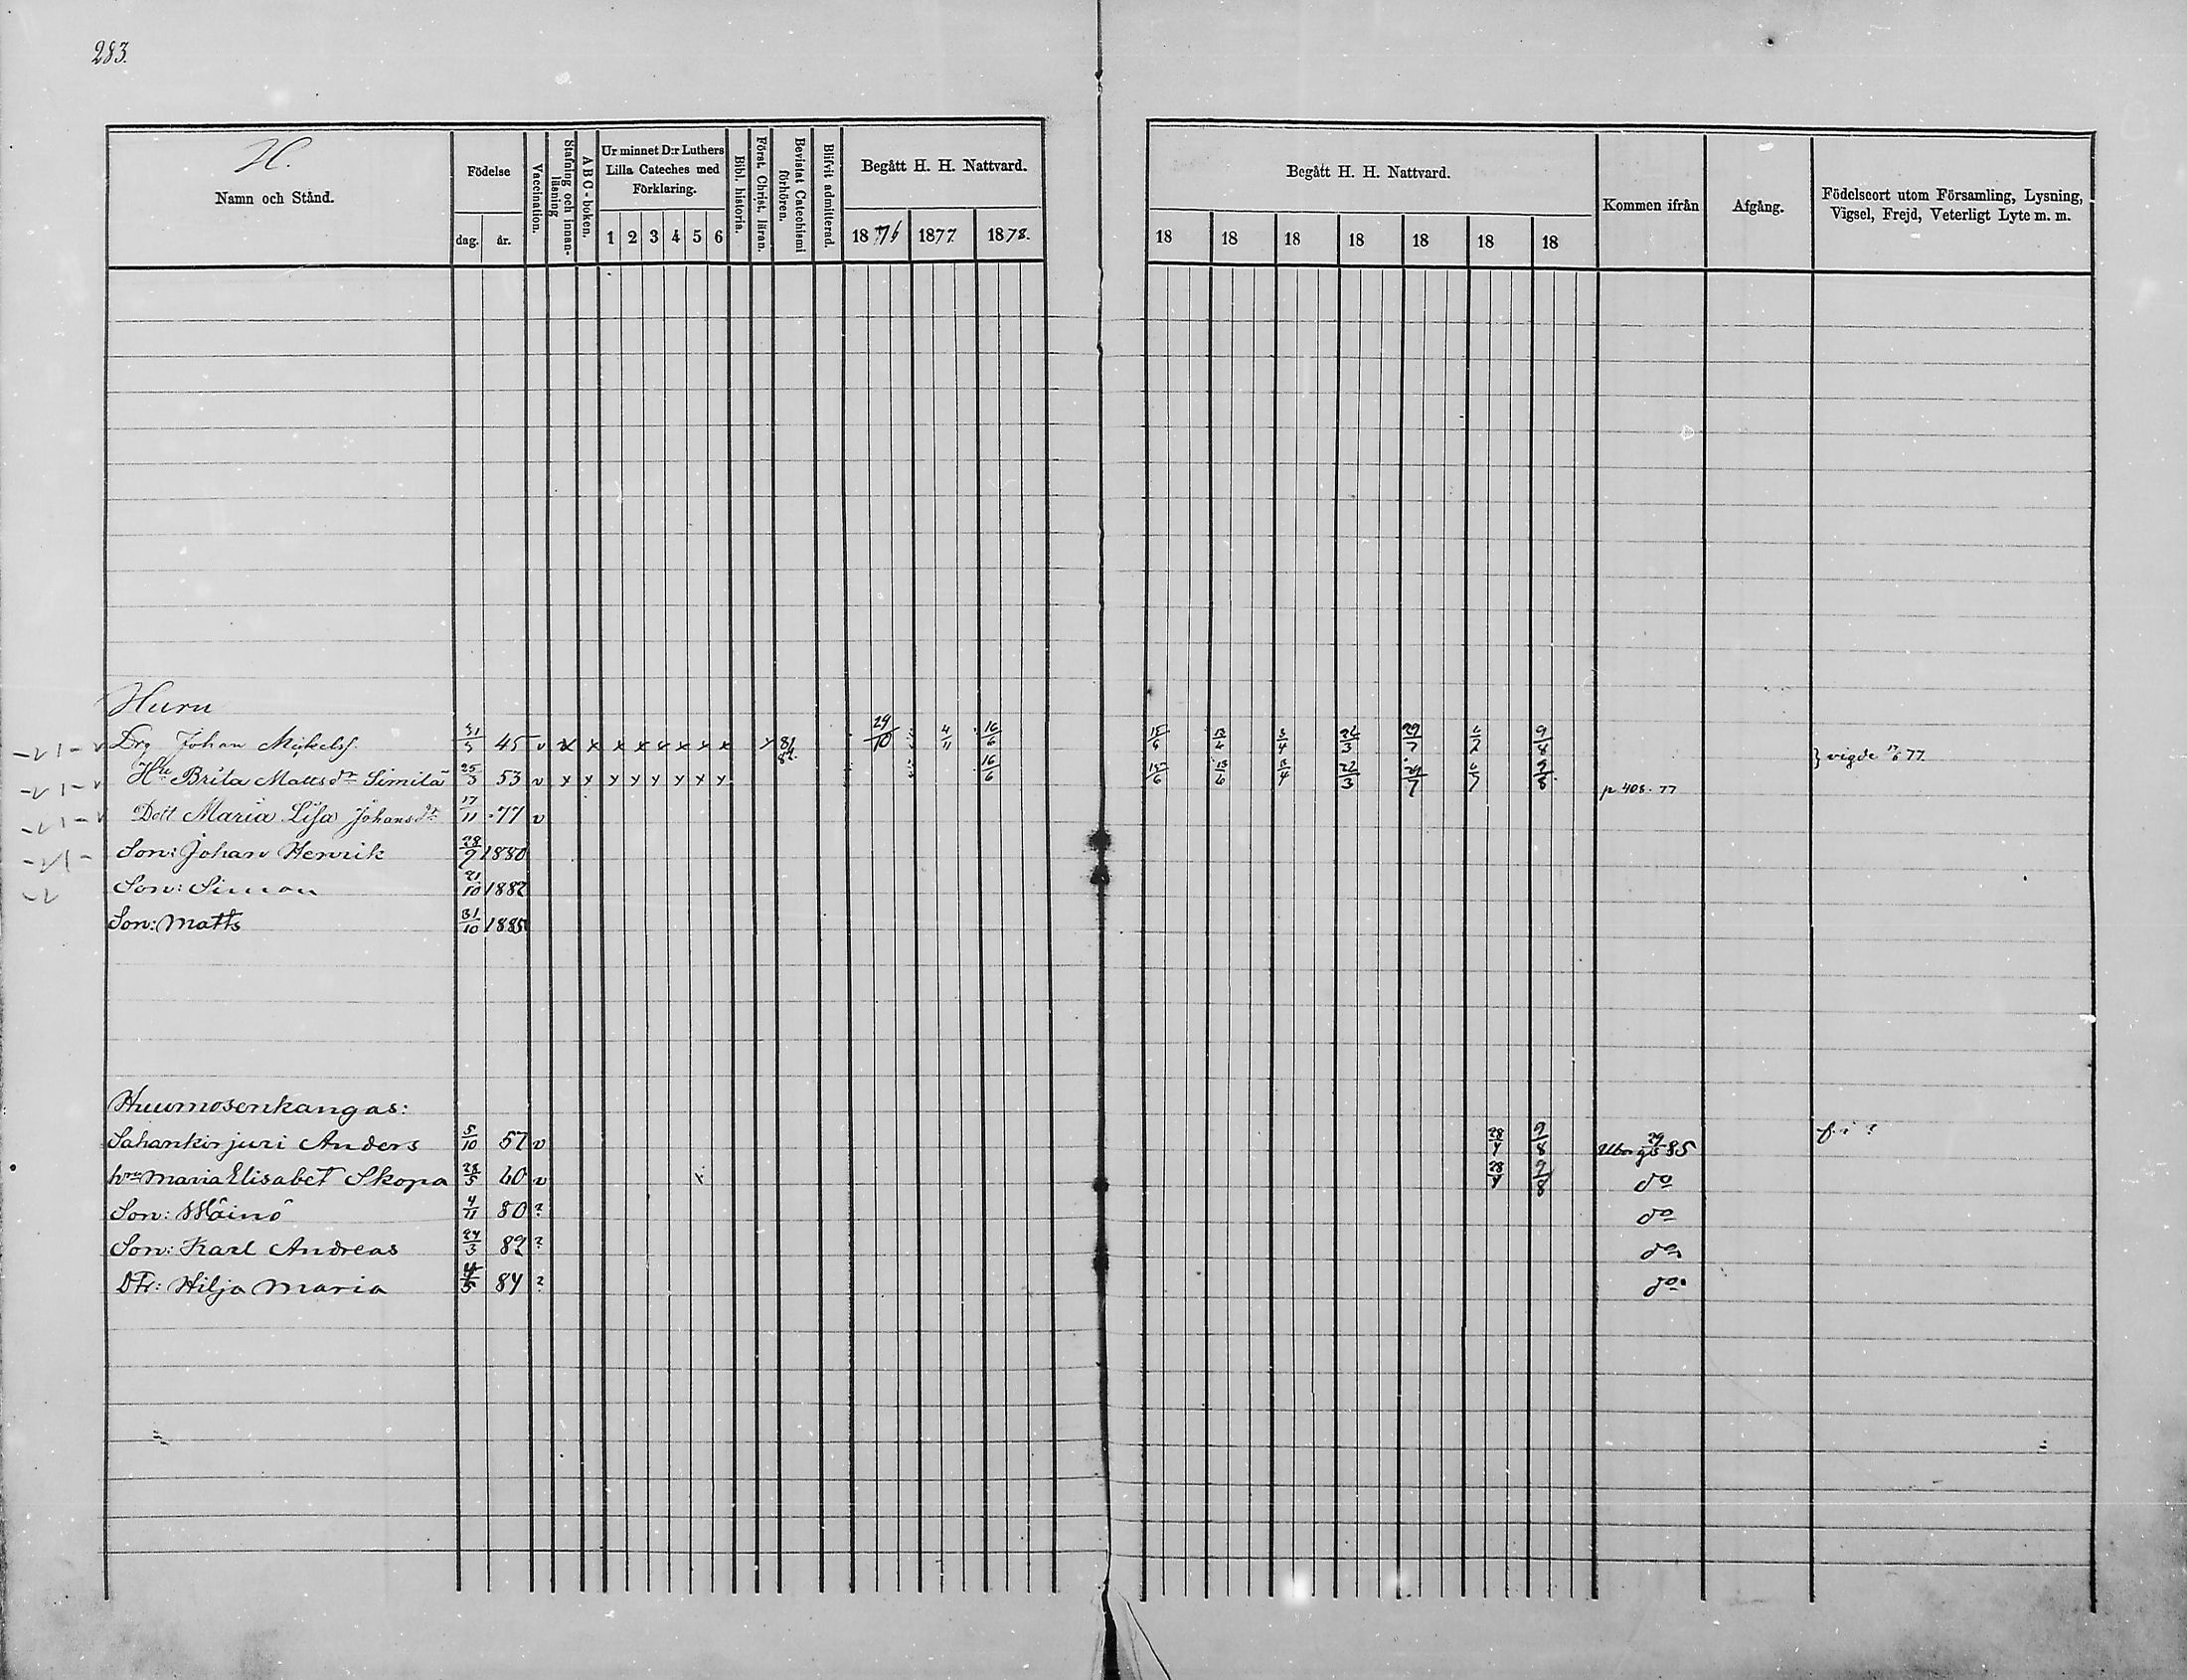 283.
H.
Namn och Stånd.
Födelse
dag. år.
Vaccination.
Stafning och innanläsning
A B C-boken.
Ur minnet D:r Luthers Lilla Cateches med Förklaring.
1 2 3 4 5 6
Bibl. historia.
Först. Christ. läran.
Bevistat Catechismi förhören.
Blifvit admitterad.
Begått H. H. Nattvard.
1876 1877 1878.
Begått H. H. Nattvard.
18 18 18 18 18 18 18
Kommen ifrån
Afgång.
Födelseort utom Församling, Lysning, Vigsel, Frejd, Veterligt Lyte m. m.
Huru
Drg Johan Mickelss. 31/3 45 v x x x x x x x x x 81/82. 29/10 4/11 16/6 15/6 13/6 3/4 22/3 29/7 9/8 } vigde 17/6 77
Hu Brita Mattsdr Similä 25/3 53 v x x x x x x x x 16/6 15/6 13/6 3/4 22/3 29/7 6/7 9/8 p. 408. 77
Dott Maria Lisa Johansdr 17/11 77 v
Son: Johan Henrik 28/9 1880
Son: Simon 21/10 1882
Son: Matts 31/10 1885
Huumosenkangas:
Sahankirjuri Anders 5/10 57 v 28/4 9/8 85 f. i ?
hru Maria Elisabet Skopa 28/5 60 v x 28/4 9/8 do
Son: Wäinö 4/11 80 ? do
Son: Karl Andreas 24/3 82 ? do
Dtr: Hilja Maria 4/5 84 ? do